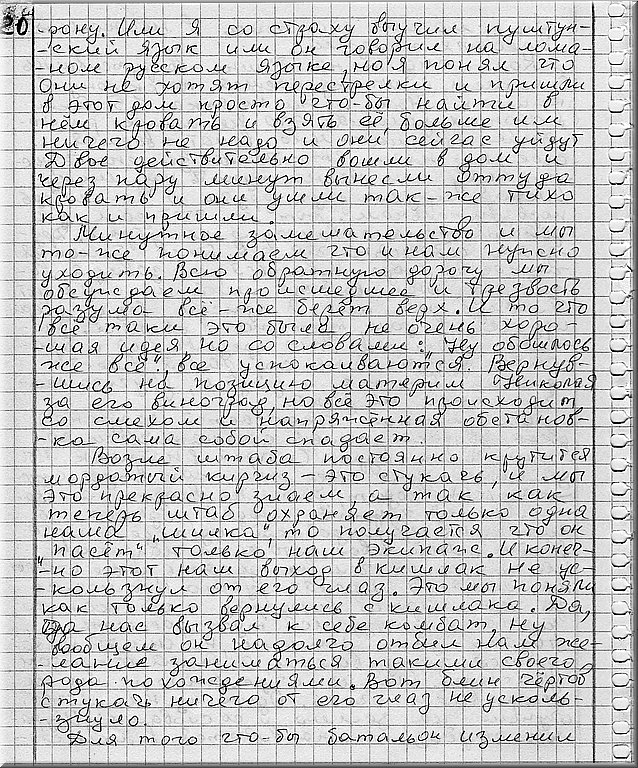 20
-рону. Или я со страху выучил пуштун-
-ский язык или он говорил на лома-
-ном русском языке, но я понял что
они не хотят перестрелки и пришли
в этот дом просто что-бы найти в
нём кровать и взять её, больше им
ничего не надо и они сейчас уйдут
Двое действительно вошли в дом и
через пару минут вынесли оттуда
кровать и они ушли так-же тихо
как и пришли.
Минутное замешательство и мы
то-же понимаем что и нам нужно
уходить. Всю обратную дорогу мы
обсуждаем происшедшее и трезвость
разума всё-же берёт верх. И то что
всё таки это была не очень хоро-
-шая идея но со словами: "Ну обошлось
же всё", все успокаиваются. Вернув-
-шись на позицию материм Николая
за его виноград, но всё это происходит
со смехом и напряжённая обстанов-
-ка сама собой спадает.
Возле штаба постоянно крутится
мордатый киргиз - это стукачь, и мы
это прекрасно знаем, а так как
теперь штаб охраняет только одна
наша „шилка", то получается что он
"пасёт" только наш экипаж. И конеч-
-но этот наш выход в кишлак не ус-
-кользнул от его глаз. Это мы поняли
как только вернулись с кишлака. Да,
нас вызвал к себе комбат, ну
вообщем он надолго отбил нам же-
-лание заниматься такими своего
рода похождениями. Вот блин чёртов
стукачь ничего от его глаз не усколь-
-знуло.
Для того что-бы батальон изменил